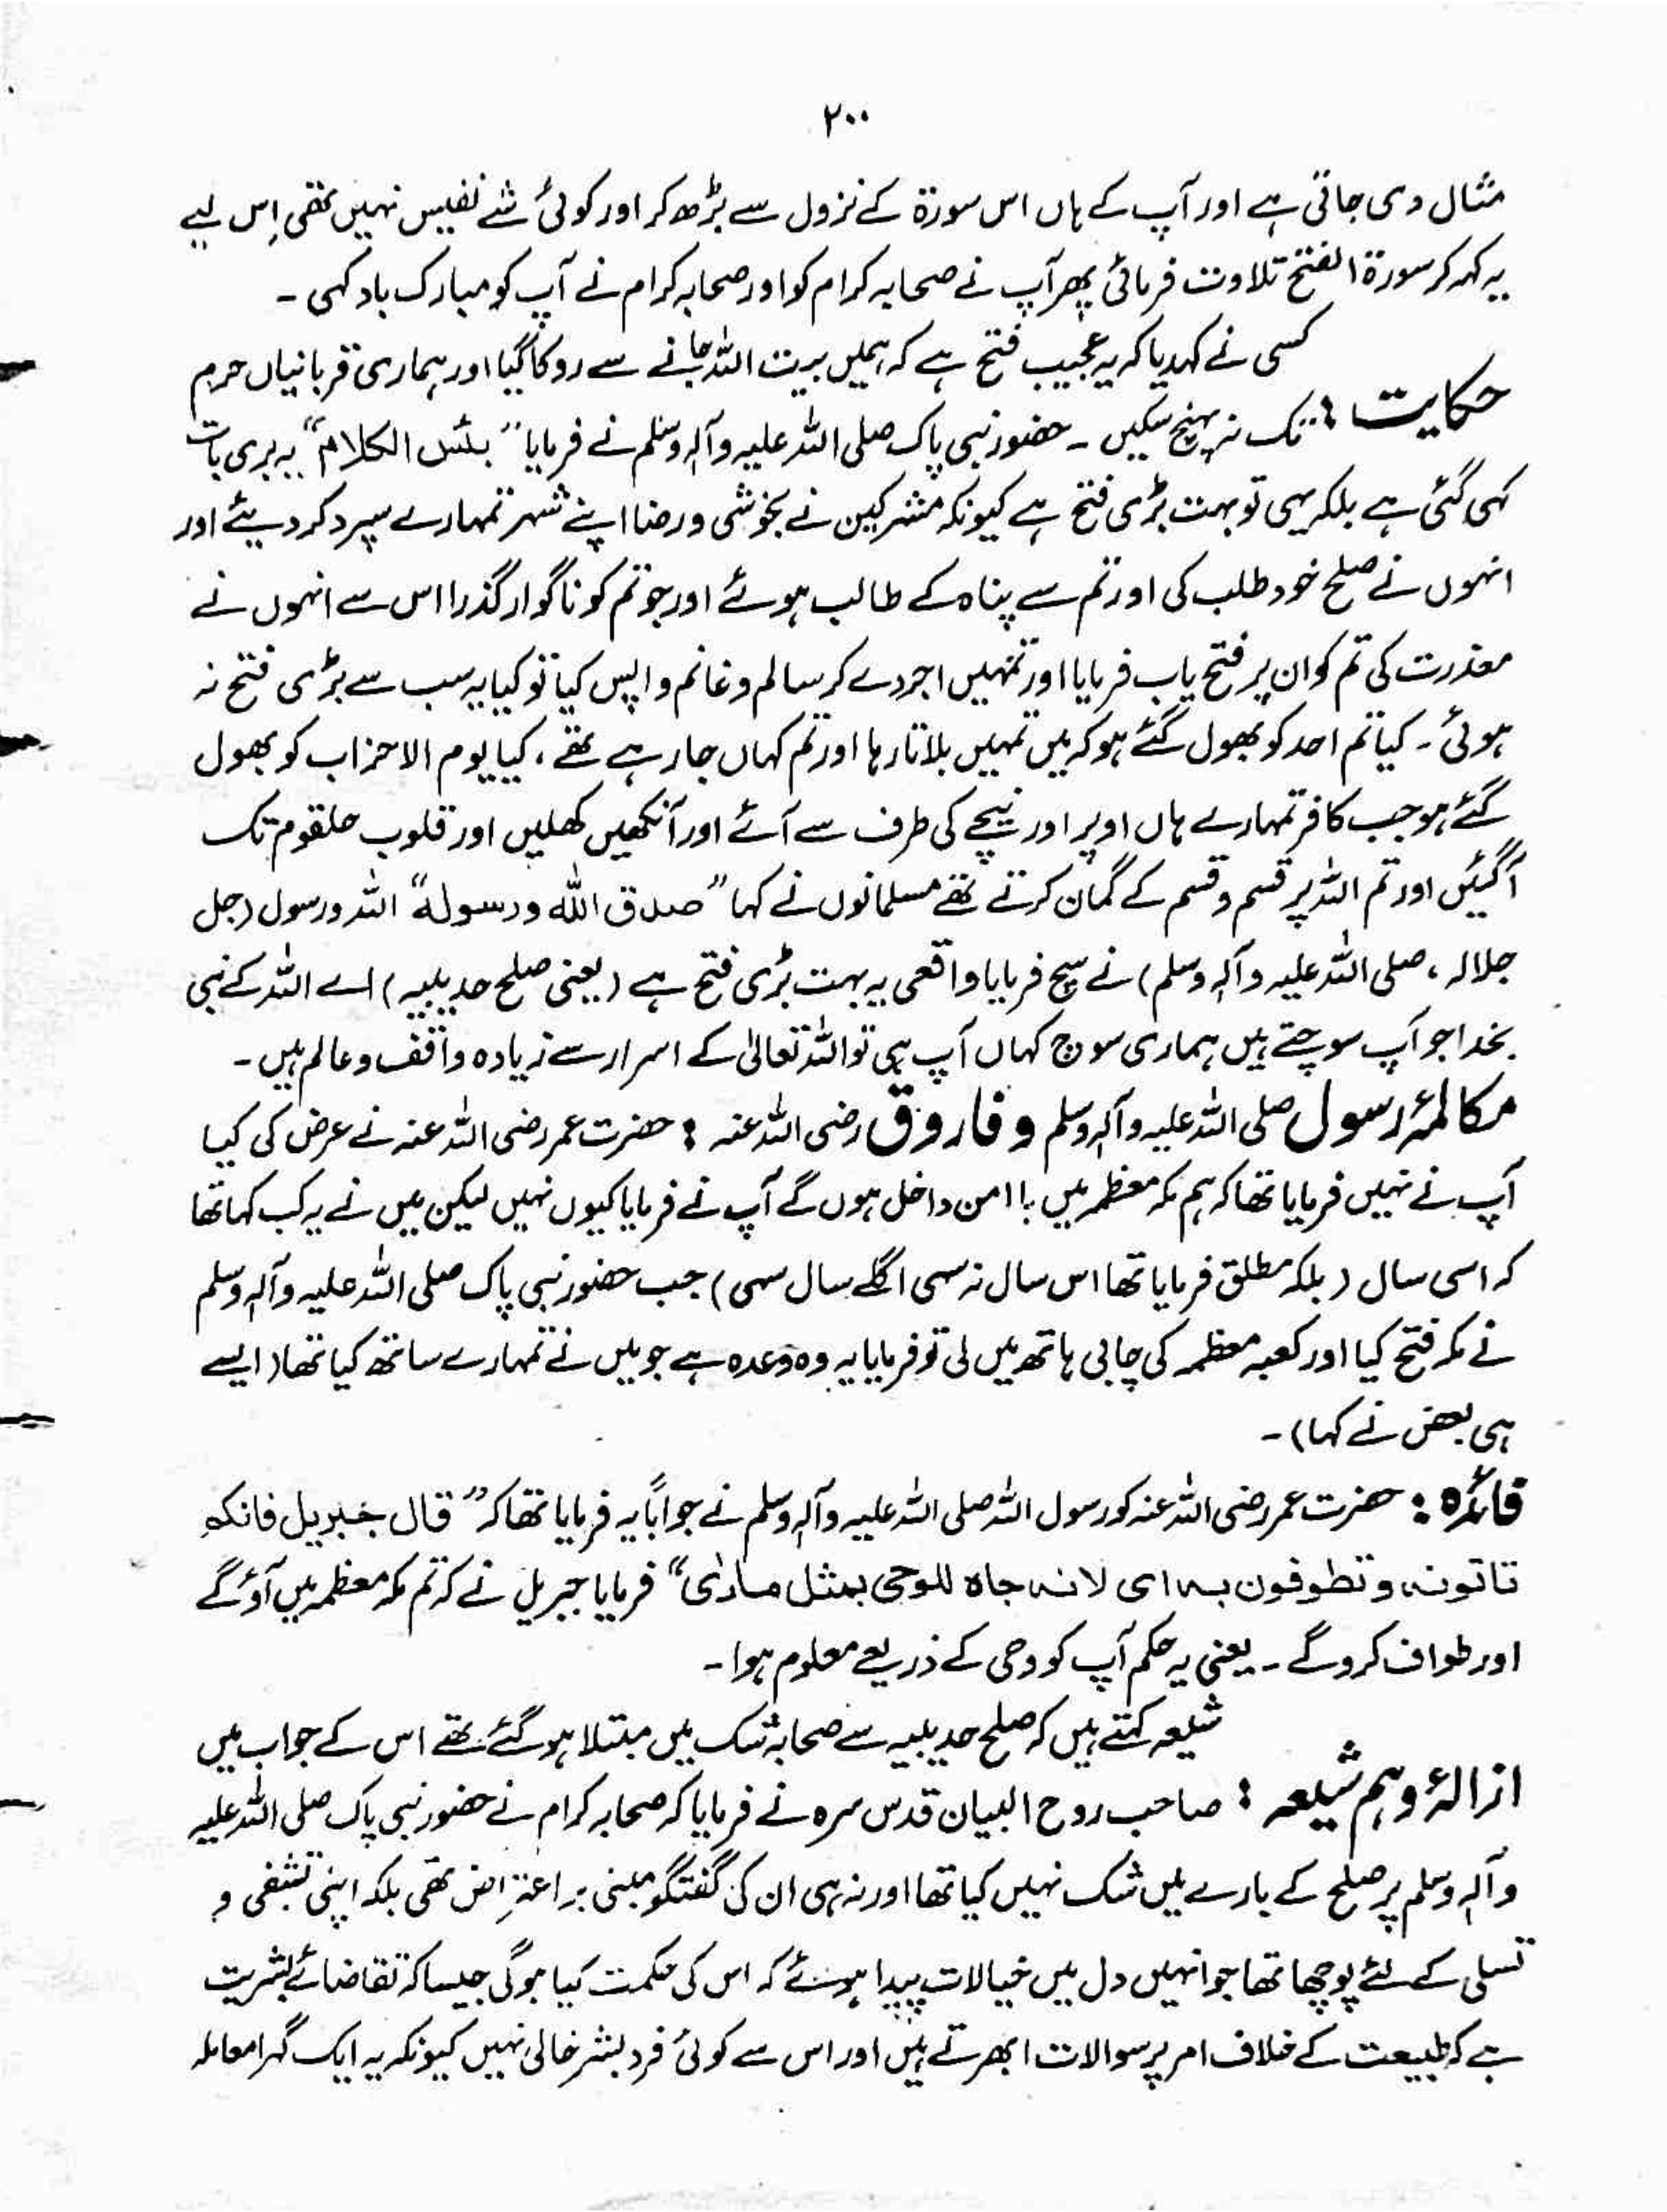 ۲۰۰
مثال دی جاتی ہے اور آپ کے ہاں اس سورۃ کے نزول سے بڑھ کر اور کوئی شے نفیس نہیں تھی اِس لیے
یہ کہہ کر سورۃ الفتح تلاوت فرمائی پھر آپ نے صحابہ کرام کو اور صحابہ کرام نے آپ کو مبارک باد کہی ۔
کسی نے کہدیا کہ یہ عجیب فتح ہے کہ ہمیں بیت اللہ جانے سے روکا گیا اور ہماری قربانیاں حرم
حکایت : تک نہ پہنچ سکیں ۔ حضور نبی پاک صلی اللہ علیہ وآلہٖ وسلم نے فرمایا ”بئس الکلام“ یہ بری بات
کہی گئی ہے بلکہ یہی تو بہت بڑی فتح ہے کیونکہ مشرکین نے بخوشی و رضا اپنے شہر تمہارے سپرد کر دیئے اور
انہوں نے صلح خود طلب کی اور تم سے پناہ کے طالب ہوئے اور جو تم کو ناگوار گذرا اس سے انہوں نے
معذرت کی تم کو ان پر فتح یاب فرمایا اور تمہیں اجر دے کر سالم و غانم واپس کیا تو کیا یہ سب سے بڑی فتح نہ
ہوئی ۔ کیا تم احد کو بھول گئے ہو کہ میں تمہیں بلاتا رہا اور تم کہاں جا رہے تھے ، کیا یوم الاحزاب کو بھول
گئے ہو جب کافر تمہارے ہاں اوپر اور نیچے کی طرف سے آئے اور آنکھیں کھلیں اور قلوب حلقوم تک
آگئیں اور تم اللہ پر قسم و قسم کے گمان کرتے تھے مسلمانوں نے کہا ”صدق اللّٰہ ورسولہ“ اللہ و رسول (جل
جلالہ ، صلی اللہ علیہ وآلہٖ وسلم) نے سچ فرمایا واقعی یہ بہت بڑی فتح ہے (یعنی صلح حدیبیہ) اے اللہ کے نبی
بخدا جو آپ سوچتے ہیں ہماری سوچ کہاں آپ ہی تو اللہ تعالیٰ کے اسرار سے زیادہ واقف و عالم ہیں ۔
مکالمۂ رسول صلی اللہ علیہ وآلہٖ وسلم و فاروق رضی اللہ عنہ : حضرت عمر رضی اللہ عنہ نے عرض کی کیا
آپ نے نہیں فرمایا تھا کہ ہم مکہ معظمہ میں با امن داخل ہوں گے آپ نے فرمایا کیوں نہیں لیکن میں نے یہ کب کہا تھا
کہ اسی سال (بلکہ مطلق فرمایا تھا اس سال نہ سہی اگلے سال سہی) جب حضور نبی پاک صلی اللہ علیہ وآلہٖ وسلم
نے مکہ فتح کیا اور کعبہ معظمہ کی چابی ہاتھ میں لی تو فرمایا یہ وہ وعدہ ہے جو میں نے تمہارے ساتھ کیا تھا (ایسے
ہی بعض نے کہا) ۔
فائدہ : حضرت عمر رضی اللہ عنہ کو رسول اللہ صلی اللہ علیہ وآلہٖ وسلم نے جواباً یہ فرمایا تھا کہ ”قال جبریل فانکم
تاتونہ و تطوفون بہ ای لانہ جاہ للوحی بمثل مارأی“ فرمایا جبریل نے کہ تم مکہ معظمہ میں آؤ گے
اور طواف کرو گے ۔ یعنی یہ حکم آپ کو وحی کے ذریعے معلوم ہوا ۔
شیعہ کہتے ہیں کہ صلح حدیبیہ سے صحابہ شک میں مبتلا ہو گئے تھے اس کے جواب میں
ازالۂ وہم شیعہ : صاحب روح البیان قدس سرہ نے فرمایا کہ صحابہ کرام نے حضور نبی پاک صلی اللہ علیہ
وآلہٖ وسلم پر صلح کے بارے میں شک نہیں کیا تھا اور نہ ہی ان کی گفتگو مبنی بر اعتراض تھی بلکہ اپنی تشفی و
تسلی کے لئے پوچھا تھا جو انہیں دل میں خیالات پیدا ہوئے کہ اس کی حکمت کیا ہوگی جیسا کہ تقاضائے بشریت
ہے کہ طبیعت کے خلاف امر پر سوالات ابھرتے ہیں اور اس سے کوئی فرد بشر خالی نہیں کیونکہ یہ ایک گہرا معاملہ